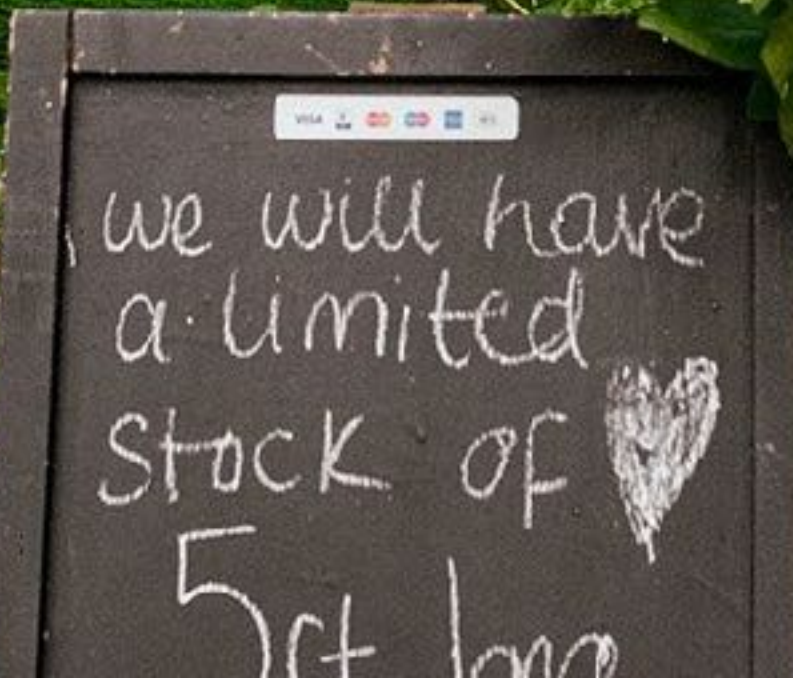 VISA
we will have
a limited
stock of
5ft long